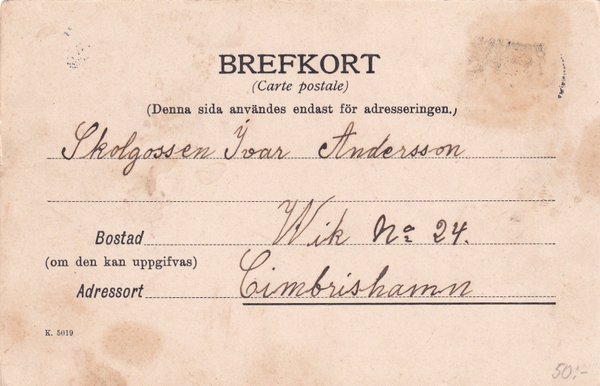 BREFKORT
(Carte postale)
(Denna sida användes endast för adresseringen.)
Skolgossen Ivar Andersson
Wik No 24.
Bostad
(om den kan uppgifvas)
Cimbrishamn
Adressort
K. 5019
50:-